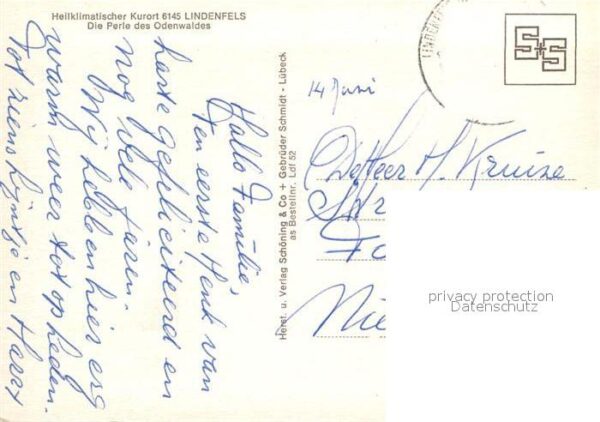 Heilklimatischer Kurort 6145 LINDENFELS
Die Perle des Odenwaldes
Hallo Familie,
Ten eerste Henk van
harte gefeliciteerd en
nog vele jaren.
Wij hebben hier erg
warm weer tot op heden.
Tot ziens Lijntje en Harry
Herst. u. Verlag Schöning & Co + Gebrüder Schmidt - Lübeck
as Bestellnr. Ldf 52
14 Juni
De Heer H. Kruize
Nie
S+S
LINDENF
privacy protection
Datenschutz